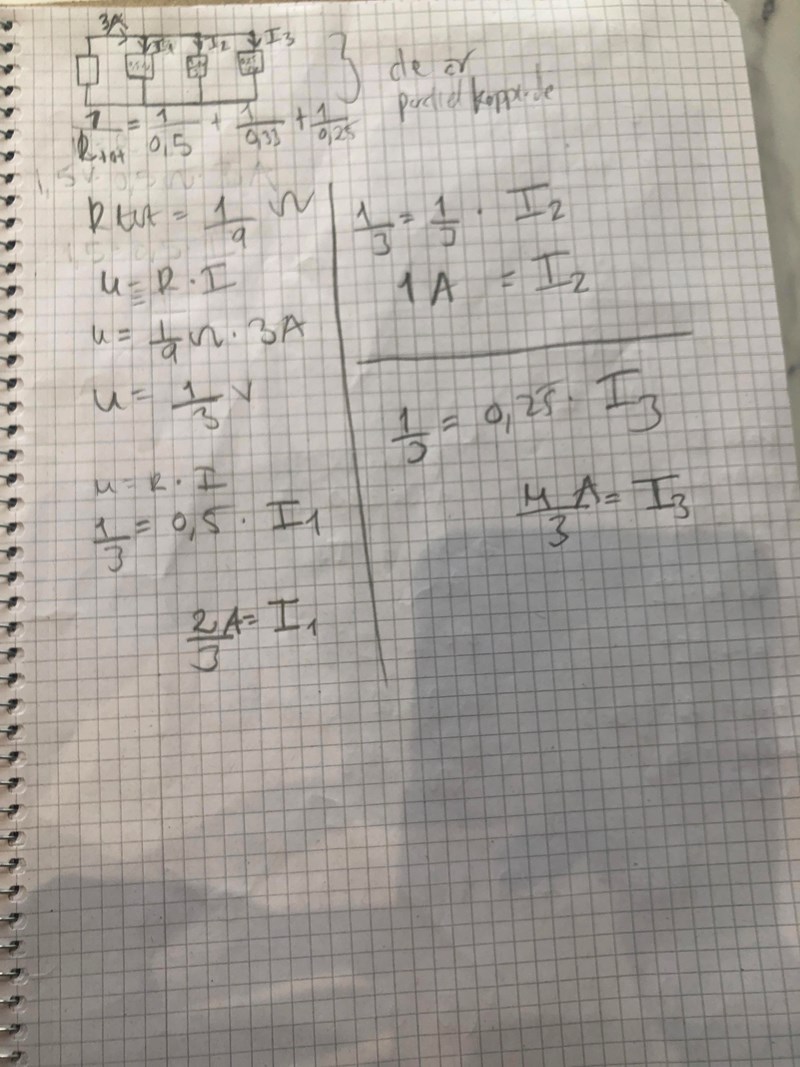 3A I1 I2 I3
de är
parallellkopplade
1/Rtot = 1/0,5 + 1/0,33 + 1/0,25
Rtot = 1/9 Ω
U = R · I
U = 1/9 Ω · 3A
U = 1/3 V
U = R · I
1/3 = 0,5 · I1
2/3 A = I1
1/3 = 1/3 · I2
1 A = I2
1/3 = 0,25 · I3
4/3 A = I3